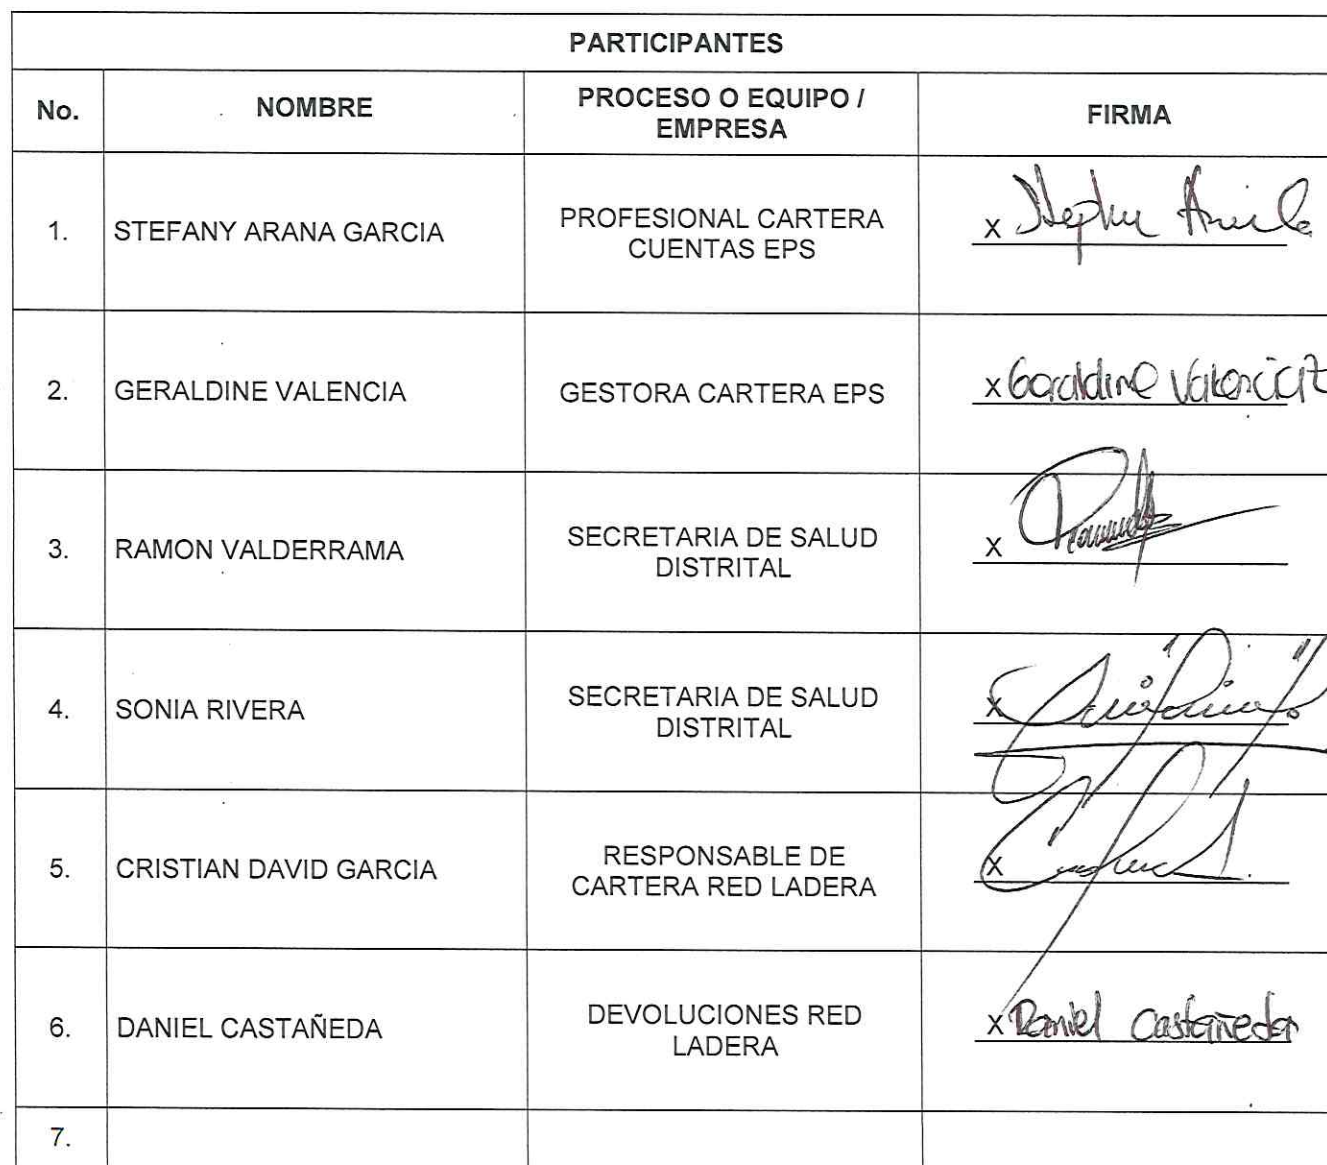 PARTICIPANTES
No.
NOMBRE
PROCESO O EQUIPO /
EMPRESA
FIRMA
1.
STEFANY ARANA GARCIA
PROFESIONAL CARTERA
CUENTAS EPS
X
2.
GERALDINE VALENCIA
GESTORA CARTERA EPS
X Geraldine Valencia
3.
RAMON VALDERRAMA
SECRETARIA DE SALUD
DISTRITAL
X
4.
SONIA RIVERA
SECRETARIA DE SALUD
DISTRITAL
X
5.
CRISTIAN DAVID GARCIA
RESPONSABLE DE
CARTERA RED LADERA
X
6.
DANIEL CASTAÑEDA
DEVOLUCIONES RED
LADERA
X Daniel Castañeda
7.